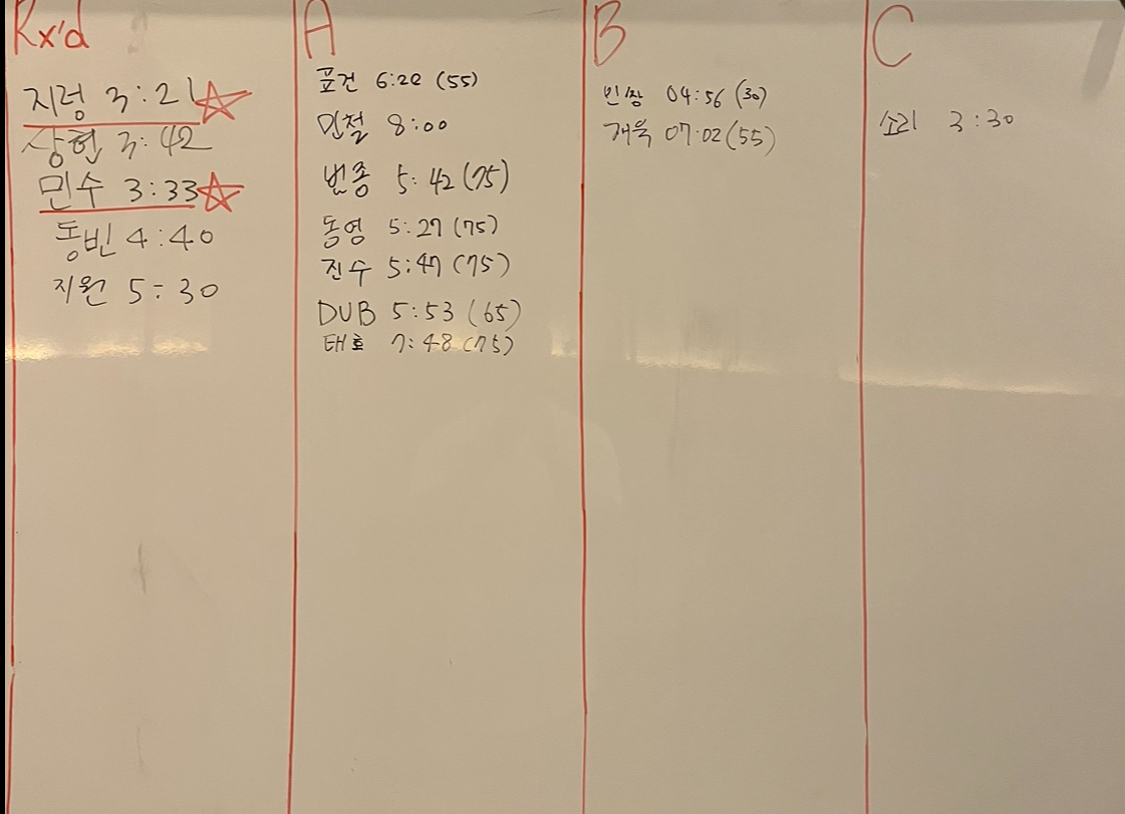 Rx'd
지렁 3:21
상현 3:42
민수 3:33
동빈 4:40
지원 5:30
A
표건 6:20 (55)
민철 8:00
번종 5:42 (75)
동영 5:27 (75)
진수 5:47 (75)
DUB 5:53 (65)
태호 7:48 (75)
B
빈짱 04:56 (30)
재욱 07:02 (55)
C
소리 3:30